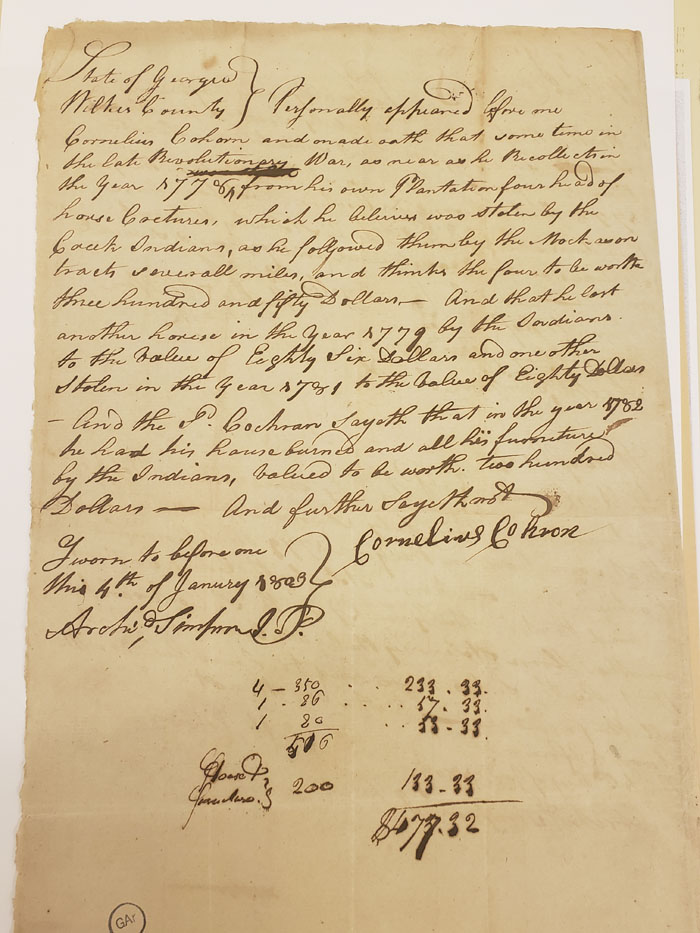 State of Georgia }
Wilkes County } Personally appeared before me
Cornelius Cohorn and made oath that some time in
the late Revolutionary War, as near as he Recollects in
the Year 1778 from his own Plantation four head of
horse Cretures, which he beleives was stolen by the
Creek Indians, as he followed them by the Mockason
tracts severall miles, and thinks the four to be worth
three hundred and fifty Dollars — And that he lost
another horse in the Year 1779 by the Indians
to the value of Eighty Six Dollars and one other
Stolen in the Year 1781 to the Value of Eighty Dollars
— And the Sd. Cochran Sayeth that in the year 1782
he had his house burned and all his furniture
by the Indians, Valued to be worth two hundred
Dollars — And further Sayeth not
Sworn to before me } Cornelius Cohron
this 4th of Janury 1803 }
Archd. Simpson J. P.
4 - 350 . . . 233.33
1 . 86 . . . 57.33
1 80 . . 53-33
516
House & } 200 133-33
$477.32
GAr